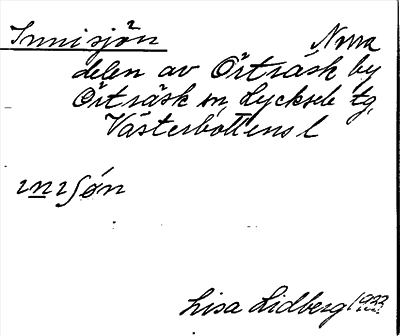 Innisjön Norra
delen av Örträsk by
Örträsk sn, Lycksele tg,
Västerbottens l
ɪnɪʃøn
Lisa Lidberg 1922